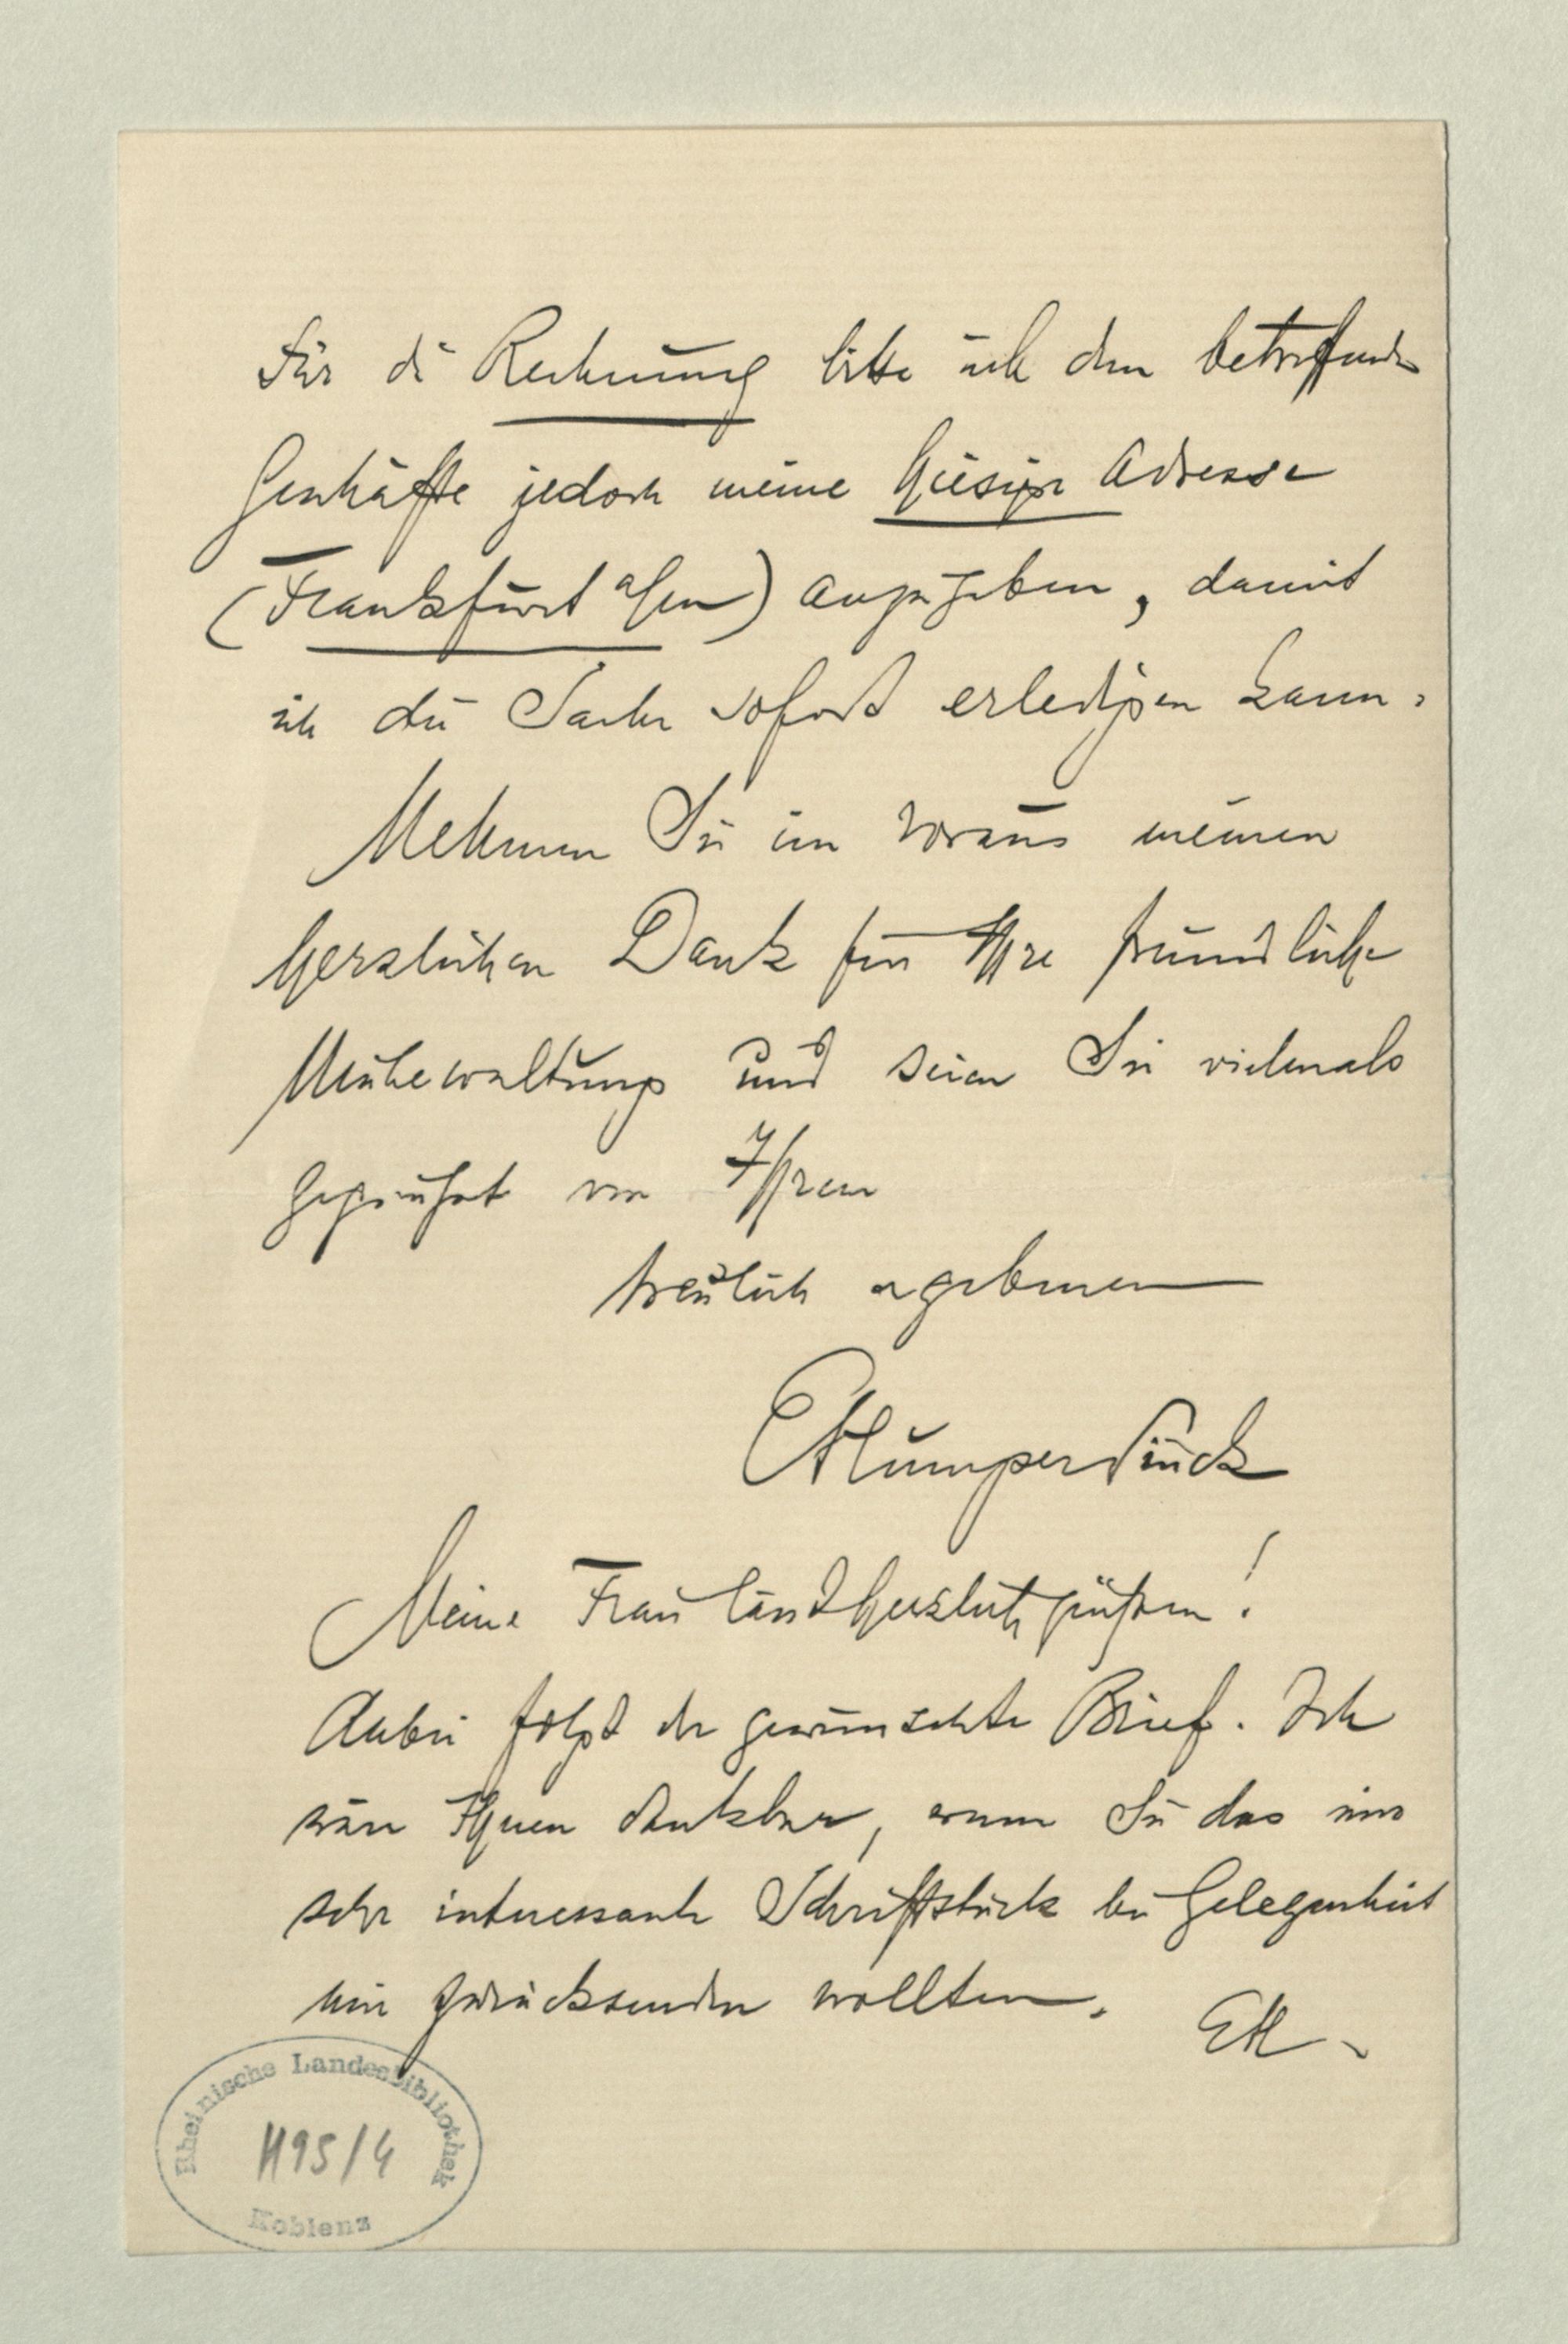 Für die Rechnung bitte ich dem betreffenden
Geschäfte jedoch meine hiesige Adresse
(Frankfurt a/m) anzugeben, damit
ich die Sache sofort erledigen kann.
Nehmen Sie im voraus meinen
herzlichen Dank für Ihre freundliche
Mühewaltung und seien Sie vielmals
gegrüßt von Ihrem
treulich ergebenen
EHumperdinck
Meine Frau läßt herzlich grüßen!
Anbei folgt der gewünschte Brief. Ich
wäre Ihnen dankbar, wenn Sie das mir
sehr interessante Schriftstück bei Gelegenheit
mir zurücksenden wollten.
EH
Rheinische Landesbibliothek
H95/4
Koblenz